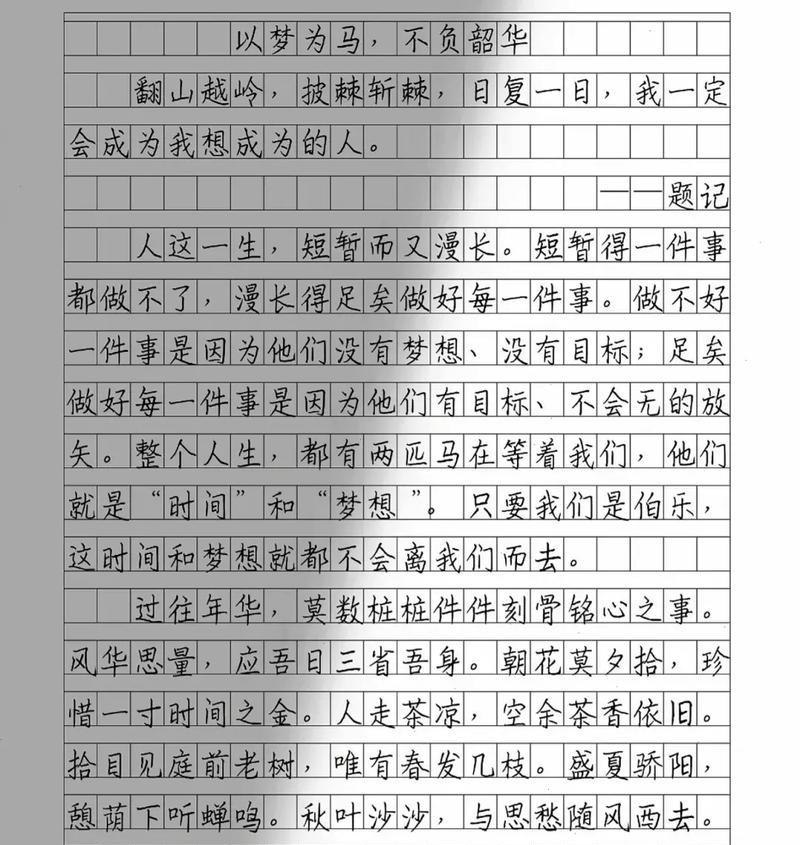 以梦为马，不负韶华
翻山越岭，披棘斩棘，日复一日，我一定
会成为我想成为的人。
——题记
人这一生，短暂而又漫长。短暂得一件事
都做不了，漫长得足矣做好每一件事。做不好
一件事是因为他们没有梦想、没有目标；足矣
做好每一件事是因为他们有目标、不会无的放
矢。整个人生，都有两匹马在等着我们，他们
就是“时间”和“梦想”。只要我们是伯乐，
这时间和梦想就都不会离我们而去。
过往年华，莫数桩桩件件刻骨铭心之事。
风华思量，应吾日三省吾身。朝花莫夕拾，珍
惜一寸时间之金。人走茶凉，空余茶香依旧。
拾目见庭前老树，唯有春发几枝。盛夏骄阳，
憩荫下听蝉鸣。秋叶沙沙，与思愁随风西去。